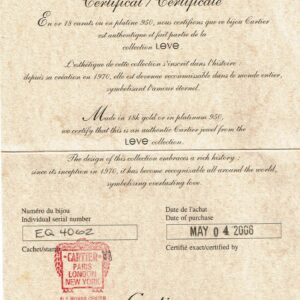 Certificat / Certificate
En or 18 carats ou en platine 950, nous certifions que ce bijou Cartier
est authentique et fait partie de la
collection LOVE
L'esthétique de cette collection s'inscrit dans l'histoire
depuis sa création en 1970, elle est devenue reconnaissable dans le monde entier,
symbolisant l'amour éternel.
Made in 18k gold or in platinum 950,
we certify that this is an authentic Cartier jewel from the
LOVE collection.
The design of this collection embraces a rich history
since its inception in 1970, it has become recognizable all around the world,
symbolizing everlasting love.
Numéro du bijou
Individual serial number
EQ 4062
Date de l'achat
Date of purchase
MAY 04 2006
Cachet/stamp
Certifié exact/certified by
CARTIER
PARIS
LONDON
NEW YORK
Cartier